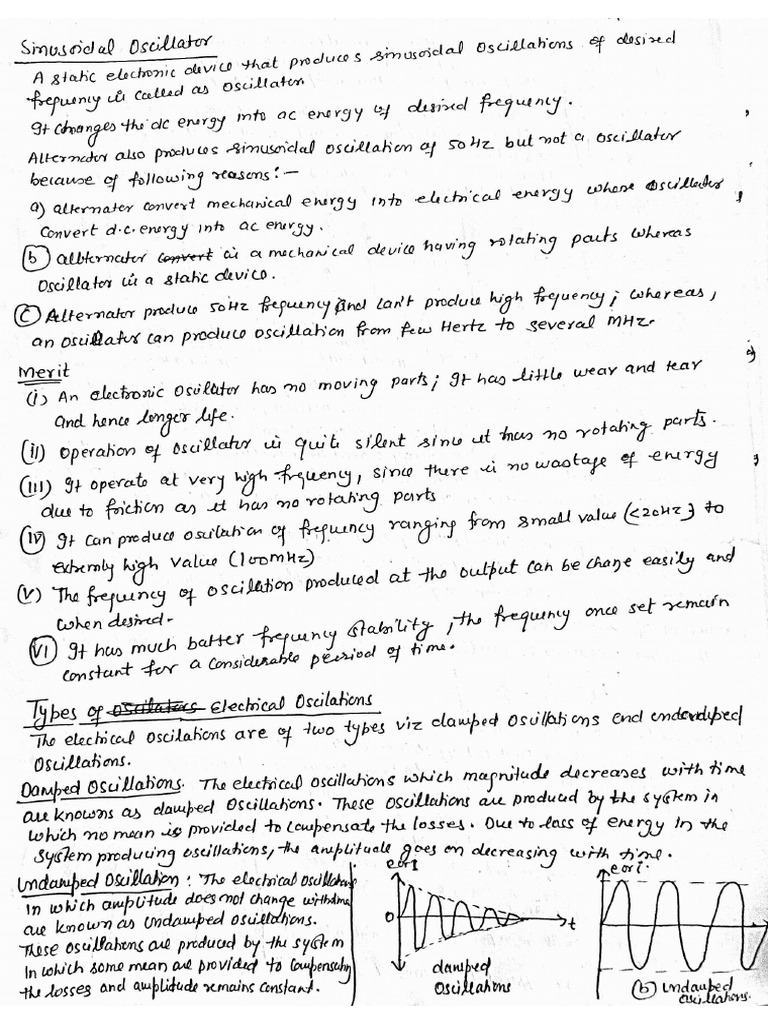 Sinusoidal Oscillator
A static electronic device that produces sinusoidal oscillations of desired
frequency is called as oscillator
It changes the dc energy into ac energy of desired frequency.
Alternator also produces sinusoidal oscillation of 50Hz but not a oscillator
because of following reasons:-
a) alternater convert mechanical energy into electrical energy where oscillator
convert d.c. energy into ac energy.
(b) albternater convert is a mechanical device having rotating parts whereas
Oscillator is a static device.
(C) Alternator produce 50Hz frequency and can't produce high frequency; whereas,
an oscillator can produce oscillation from few Hertz to several MHz.
Merit
(i) An electronic oscillator has no moving parts; It has little wear and tear
and hence longer life.
(ii) Operation of oscillator is quite silent since it has no rotating parts.
(iii) It operate at very high frequency, since there is no wastage of energy
due to friction as it has no rotating parts
(iv) It can produce oscilation of frequency ranging from small value (<20Hz) to
extremly high value (100MHz)
(v) The frequency of oscilation produced at the output can be change easily and
when desired.
(vi) It has much batter frequency stability, the frequency once set remain
constant for a considerable peeriod of time.
Types of oscilators Electrical Oscilations
The electrical oscilations are of two types viz damped oscillations and undamped
oscillations.
Damped Oscillations. The electrical oscillations which magnitude decreases with time
are knowns as damped oscillations. These oscillations are produced by the system in
which no mean is provided to compensate the losses. Due to loss of energy in the
system producing oscillations, the amplitude goes on decreasing with time.
Undamped Oscillation: The electrical oscillations
in which amplitude does not change with time
are known as undamped oscillations.
These oscillations are produced by the system
in which some mean are provided to compensating
the losses and amplitude remains constant.
e or I
0
t
damped
oscillations
e or i
(b) undamped
oscillations.